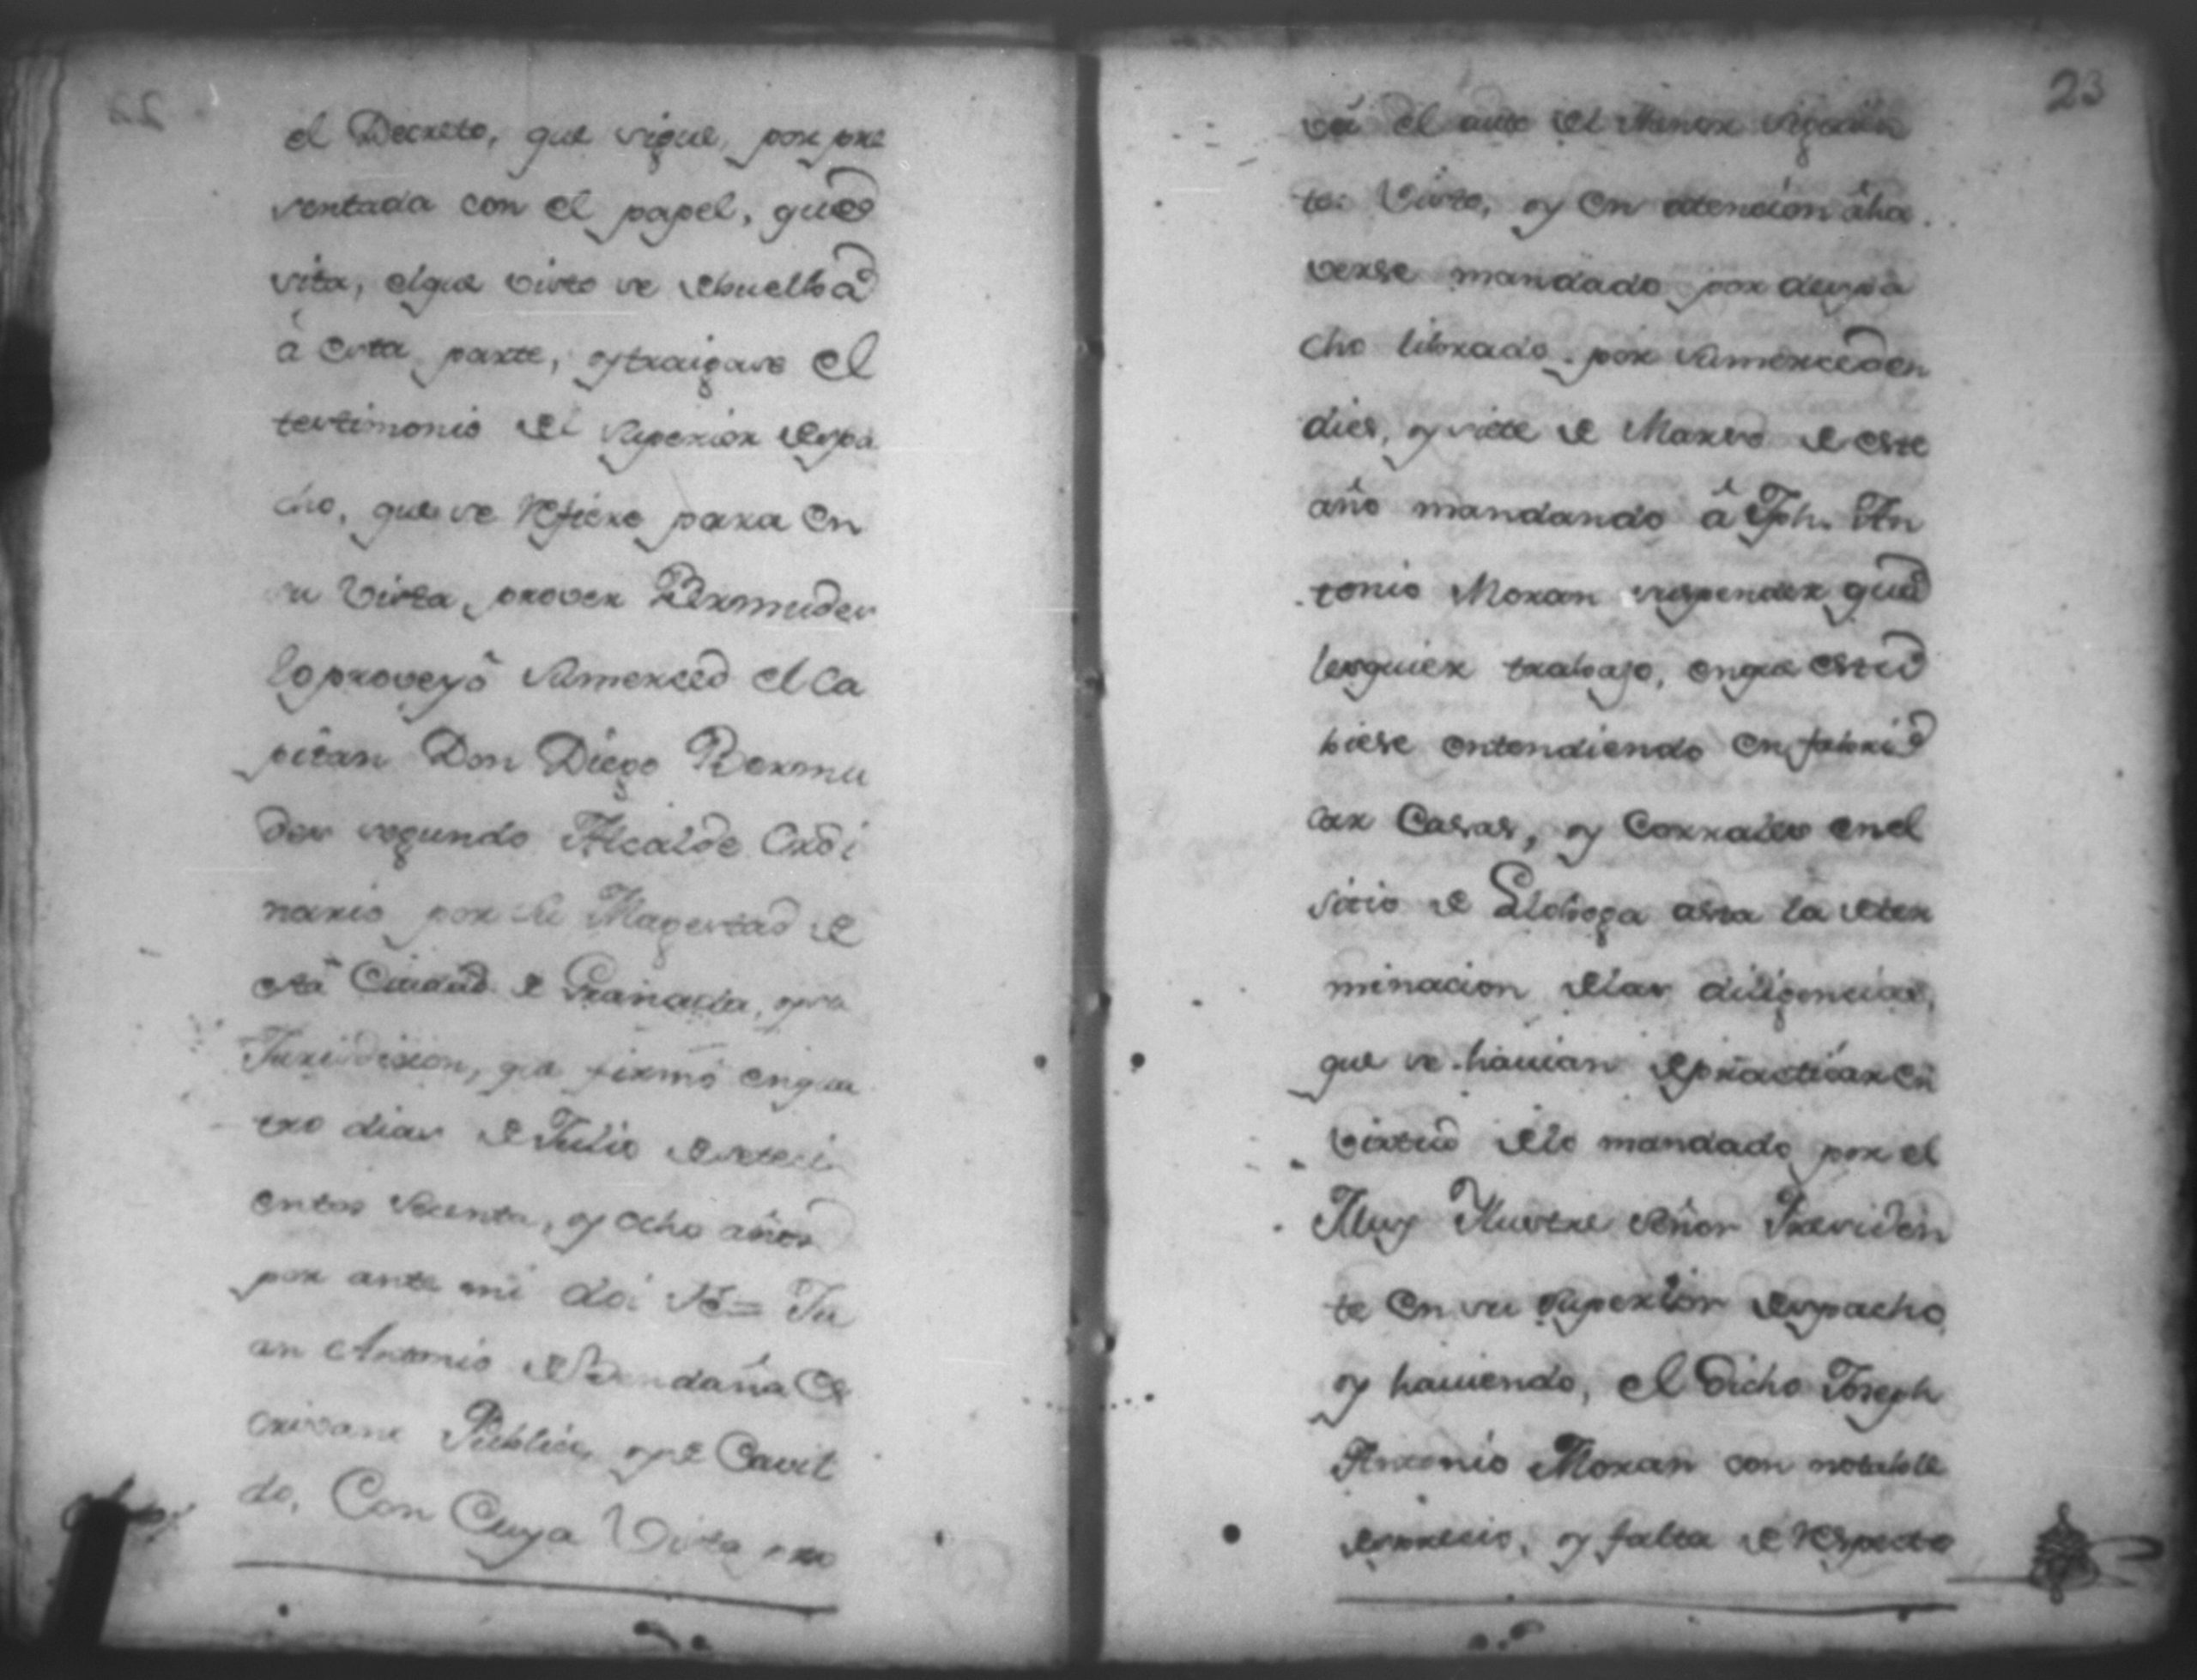 el Decreto, que sigue, por pre
sentada con el papel, que
sita, elque visto se debuelba
â esta parte, ytraigase el
testimonio del Superior despa
cho, que se refiere para en
su Vista, prover Bermudes
loproveyô Sumerced el Ca
pitan Don Diego Bermu
des segundo Alcalde Ordi
nario por Su Magestad de
esta Ciudad de Granada, y su
Jurisdision, que firmó enqua
tro dias de Julio de seteci
entos sesenta, y ocho años
por ante mi doi fé = Ju
an Antonio de Bendaña Es
crivano Publico, y de Cavil
do, Con Cuya Vista pro
23
veí el auto del thenor siguien
te: Visto, y en atencion âha
verse mandado por despa
cho librado por Sumerced en
dies, y siete de Marso de este
año mandando â Jph. An
tonio Moran suspender qua
lesquier trabajo, enque estu
biese entendiendo en fabri
car Casas, y Corrales enel
sitio de asta la deter
minacion delas diligencias,
que se havian depracticar en
Virtud delo mandado por el
Muy Ilustre Señor Presiden
te en su Superior despacho
y haviendo, el dicho Joseph
Antonio Moran con notable
desprecio, y falta de respecto